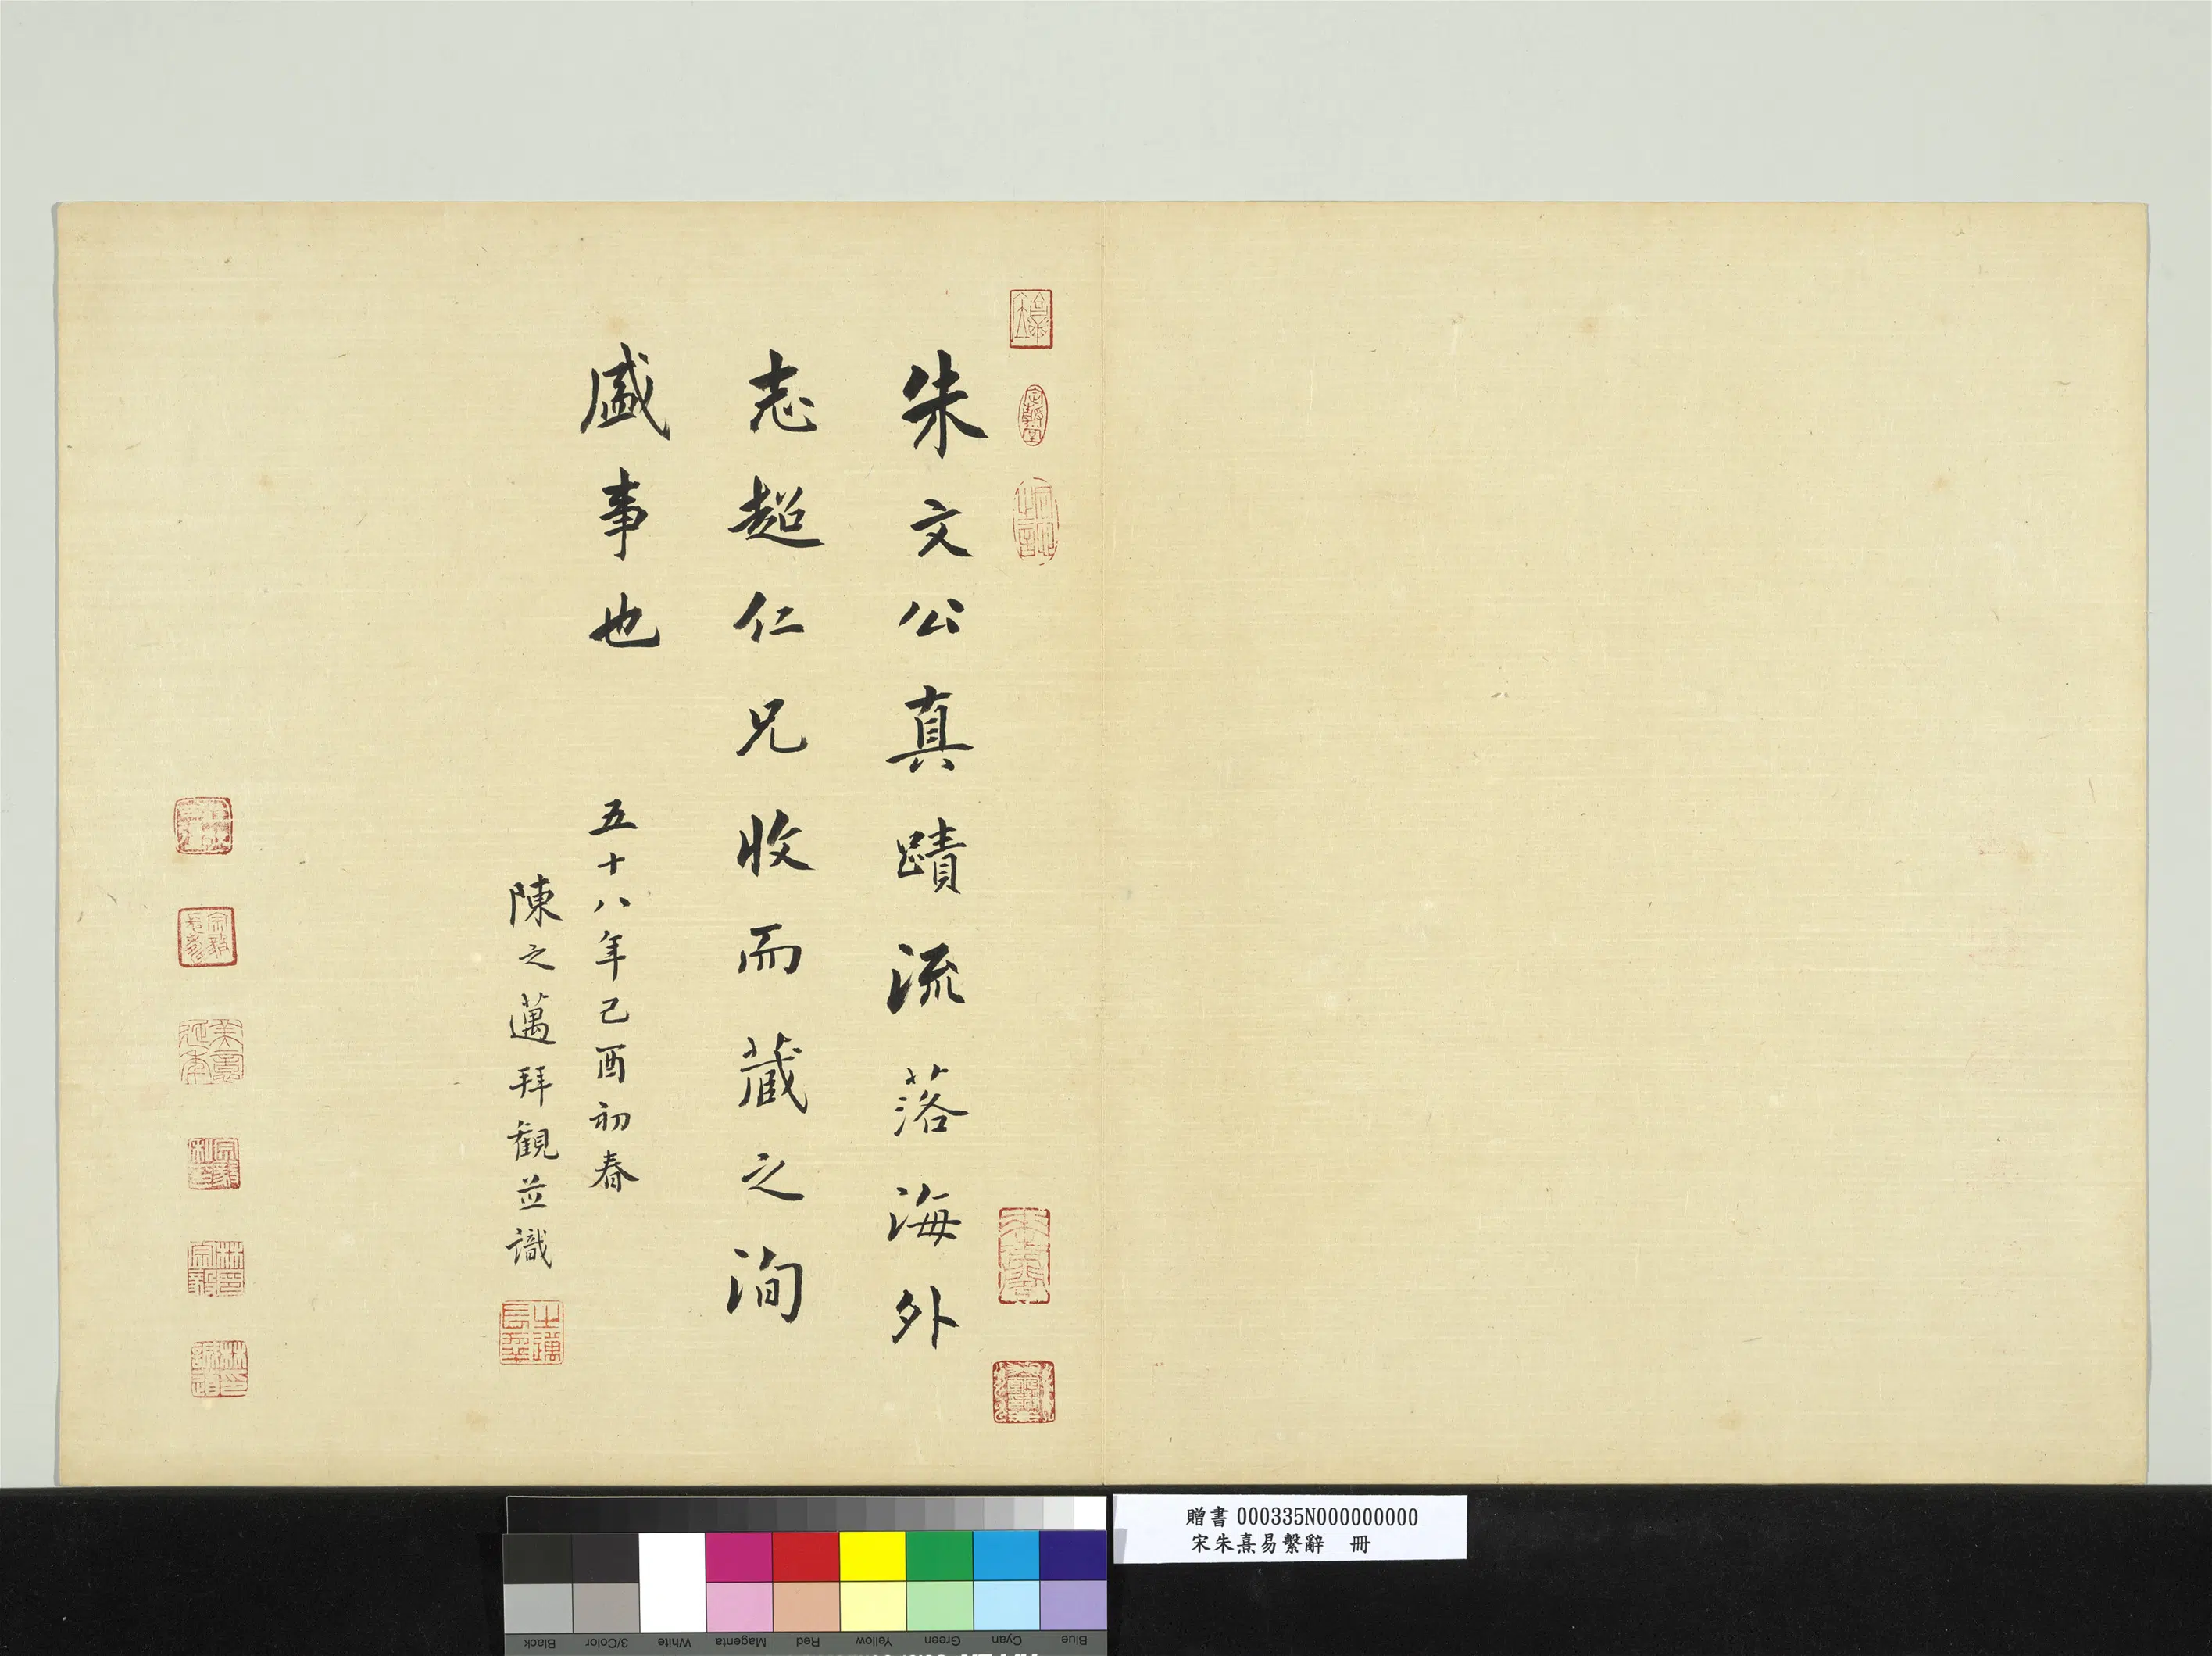 朱文公真蹟流落海外
志超仁兄收而藏之洵
盛事也
五十八年己酉初春
陳之邁拜觀並識
贈書 000335N000000000
宋朱熹易繫辭 冊
Black
3/Color
White
Magenta
Red
Yellow
Green
Cyan
Blue